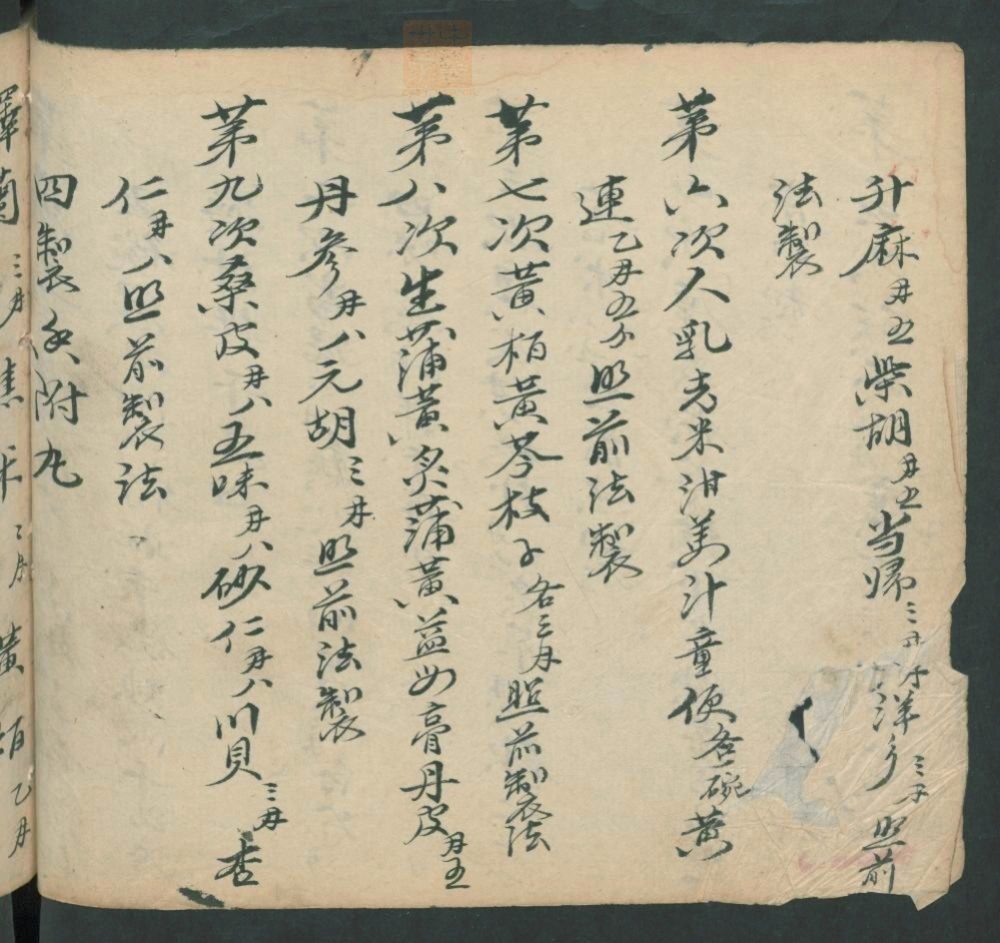 升麻刄五柴胡刄五当归三刄洋参三子照前
法製
第六次人乳老米泔姜汁童便各碗黄
連乙刄五分照前法製
第七次黄栢黄芩枝子各三刄照前製法
第八次生蒲黄炙蒲黄益母膏丹皮刄五
丹参刄八元胡三刄照前法製
第九次桑皮刄八五味刄八砂仁刄八川貝三刄杏
仁刄八照前製法
四製香附丸
三刄 三刄 黄 乙刄